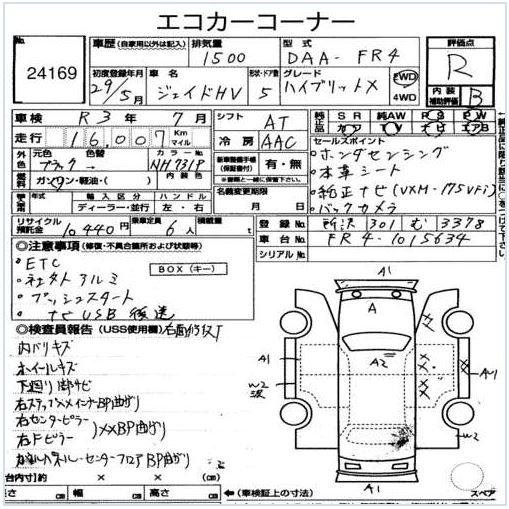 エコカーコーナー
No.
24169
車歴 (自家用以外は記入)
排気量
1500
型式
DAA-FR4
評価点
R
初度登録年月
29/5月
車名
ジェイドHV
形状・ドア数
5
グレード
ハイブリットX
2WD
4WD
内装
補助評価
B
車検 R3年 7月
シフト AT
純正品 SR 純AW PS PW
カワ ナビ エアB
走行 16,007 Km マイル
冷房 AAC
セールスポイント
外色 元色 色替 カラーNo.
ブラック NH731P
・ホンダセンシング
新車整備手帳(保証書付) 有・無
・本革シート
燃料 ガソリン・軽油・( ) 内装色
・純正ナビ(VXM-175VFi)
名義変更期限 月 日
・バックカメラ
輸入区分 ハンドル
ディーラー・並行 左・右
リサイクル預託金 10,440円
乗車定員 6人
積載量 t
登録No. 所沢 301 む 3378
車台No. FR4-1015634
シリアルNo.
◎注意事項 (修復・不具合箇所および状態等)
・ETC
BOX (キー)
・社外アルミ
・プッシュスタート
・ナビUSB後送
◎検査員報告 (USS使用欄) 右面修復了
内バリキズ
ホイールキズ
下廻り部サビ
右ステップXXインナーBP曲がり
右センターピラー
右Fピラー
)XXBP曲がり
センターフロアBP曲がり
A1
A
A1
A2
W2
波
W2
A1
スペア
台内寸)
長さ (cm) 幅 (cm) 高さ (cm)
←(車検証上の寸法)